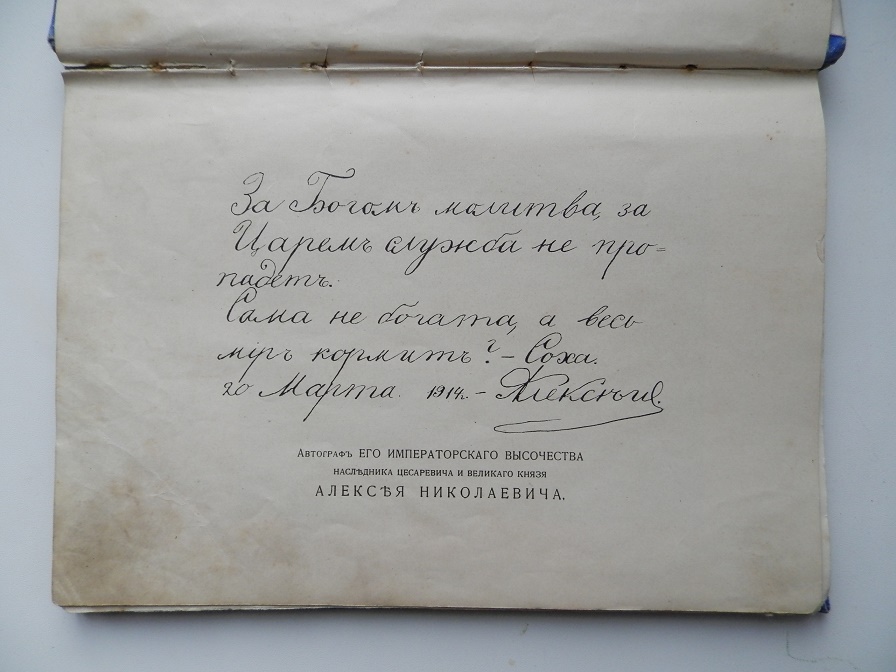 За Богомъ молитва, за
Царемъ служба не про=
падетъ.
Сама не богата, а весь
мiръ кормитъ? – Соха.
20 Марта. 1914г. – Алексѣй.
Автографъ ЕГО ИМПЕРАТОРСКАГО ВЫСОЧЕСТВА
НАСЛѢДНИКА ЦЕСАРЕВИЧА И ВЕЛИКАГО КНЯЗЯ
АЛЕКСѢЯ НИКОЛАЕВИЧА.